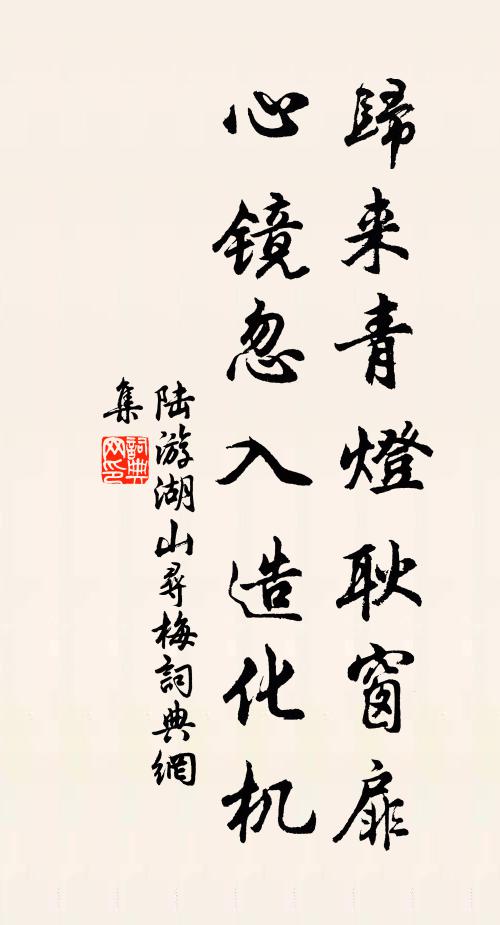 歸来青燈耿窗扉
心镜忽入造化机
陆游湖山尋梅詞典網
集
詞典网印